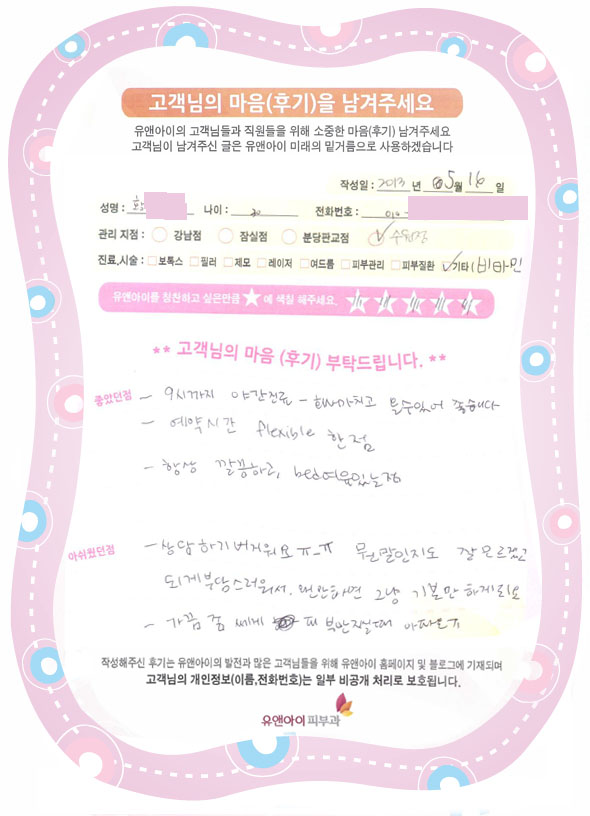 고객님의 마음(후기)을 남겨주세요
유앤아이의 고객님들과 직원들을 위해 소중한 마음(후기) 남겨주세요
고객님이 남겨주신 글은 유앤아이 미래의 밑거름으로 사용하겠습니다
작성일 : 2013 년 05월 16 일
성명 : 황 나이 : 20 전화번호 : 010 -
관리 지점 : 강남점 잠실점 분당판교점 수원점
진료,시술 : 보톡스 필러 제모 레이저 여드름 피부관리 피부질환 기타(비타민
유앤아이를 칭찬하고 싶은만큼 ★ 에 색칠 해주세요.
** 고객님의 마음 (후기) 부탁드립니다. **
좋았던점 - 9시까지 야간진료 - 마치고 올수있어 좋습니다
- 예약시간 flexible 한점
- 항상 깔끔하고, bed여유있는점
아쉬웠던점 - 상담하기버거워요 ㅠ_ㅠ 뭔말인지도 잘모르겠고
되게부담스러워서. 왠만하면 그냥 기본만 하게되요
- 가끔 좀 쎄게 피부만지실때 아파요ㅠ
작성해주신 후기는 유앤아이의 발전과 많은 고객님들을 위해 유앤아이 홈페이지 및 블로그에 기재되며
고객님의 개인정보(이름,전화번호)는 일부 비공개 처리로 보호됩니다.
유앤아이피부과